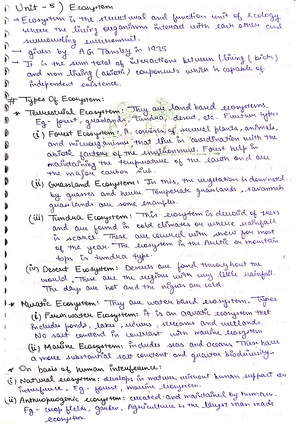 Unit - 5) Ecosystem
→ Ecosystem is the structural and function unit of ecology
where the living organisms interact with each other and
surrounding environment.
→ given by A.G. Tansley in 1935
→ It is the sum total of interactions between living (biotic)
and non living (abiotic) components which is capable of
independent existence.
# Types Of Ecosystem:
* Terrestrial Ecosystem: They are land based ecosystems,
Eg - forest, grasslands, tundra, desert, etc. Further types:
(i) Forest Ecosystem: It consists of several plants, animals,
and microorganisms that live in coordination with the
abiotic factors of the environment. Forest help in
maintaining the temperature of the earth and are
the major carbon sink.
(ii) Grassland Ecosystem: In this, the vegetation is dominated
by grasses and herbs. Temperate grasslands, savannah
grasslands are some examples.
(iii) Tundra Ecosystem: This ecosystem is devoid of trees
and are found in cold climates or where rainfall
is scarce. These are covered with snow for most
of the year. The ecosystem in the Arctic or mountain
tops is tundra type.
(iv) Desert Ecosystem: Deserts are found throughout the
world. These are the regions with very little rainfall.
The days are hot and the nights are cold.
* Aquatic Ecosystem: They are water based ecosystem. Types
(i) Freshwater Ecosystem: It is an aquatic ecosystem that
includes ponds, lakes, rivers, streams and wetlands.
No salt content in contrast with marine ecosystem
(ii) Marine Ecosystem: includes seas and oceans. These have
a more substantial salt content and greater biodiversity.
* On basis of human interference:
(i) Natural ecosystem: develops in nature without human support or
interference, Eg - forest, marine ecosystem.
(ii) Anthropogenic ecosystem: created and maintained by humans.
Eg - crop fields, garden, Agriculture is the largest man made
ecosystem.